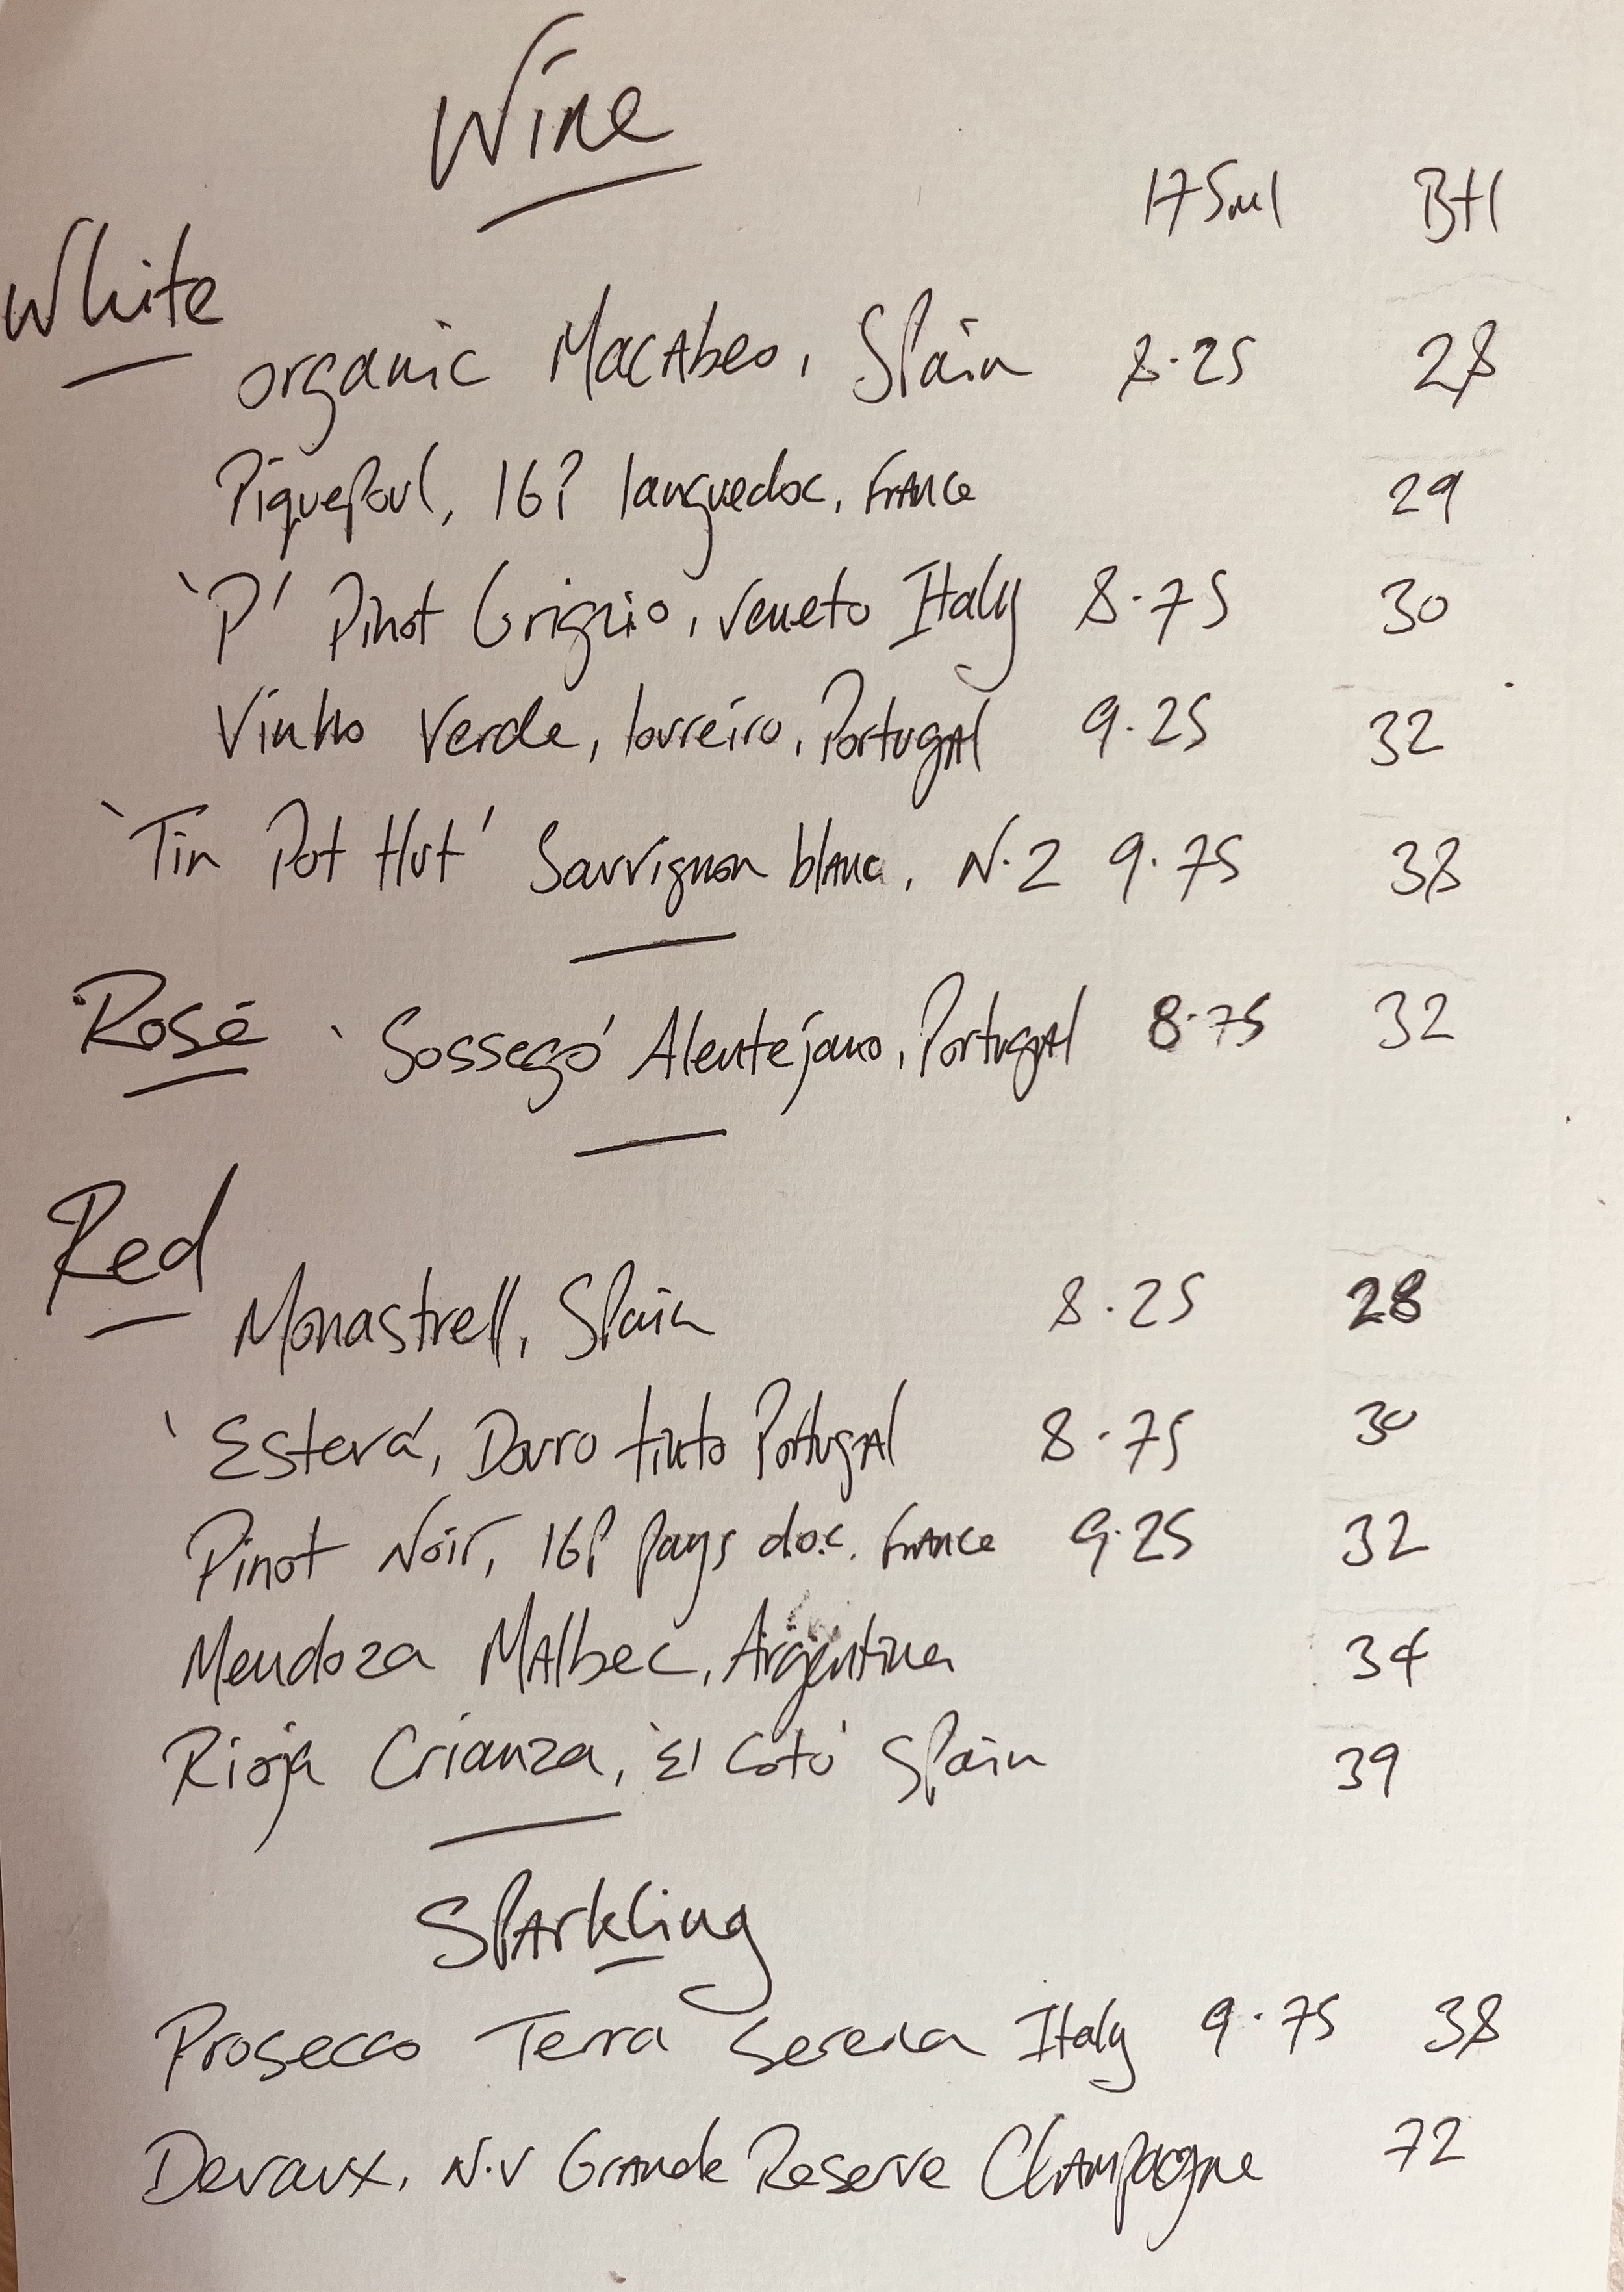 Wine
175ml Btl
White
organic Macabeo, Spain 8.25 28
Piquepoul, IGP languedoc, France 29
'P' Pinot Grigio, Veneto Italy 8.75 30
Vinho Verde, loureiro, Portugal 9.25 32
'Tin Pot Hut' Sauvignon blanc, N.Z 9.75 38
Rosé 'Sossego' Alentejano, Portugal 8.75 32
Red
Monastrell, Spain 8.25 28
'Esteva', Douro tinto Portugal 8.75 30
Pinot Noir, IGP Pays d.o.c. France 9.25 32
Mendoza Malbec, Argentina 34
Rioja Crianza, 'El Coto' Spain 39
Sparkling
Prosecco Terra Serena Italy 9.75 38
Devaux, N.V Grande Reserve Champagne 72